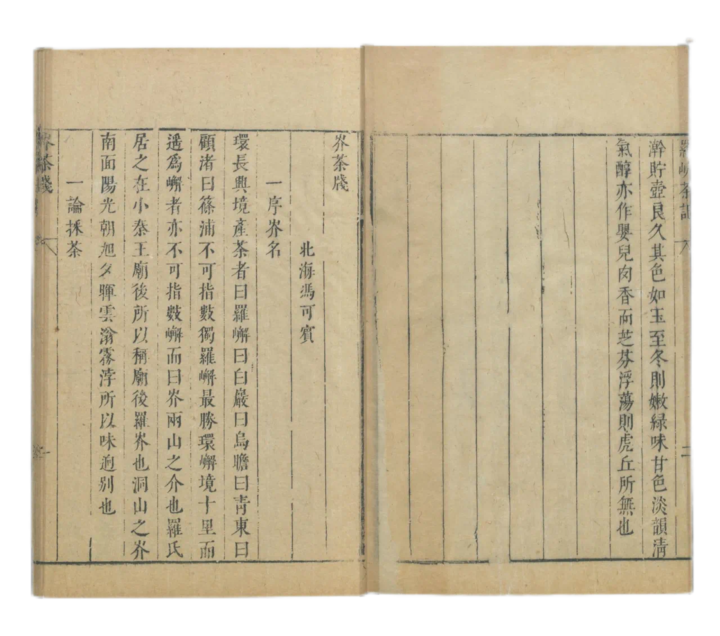 羅岕茶記
二
澣貯壺良久其色如玉至冬則嫩綠味甘色淡韻清
氣醇亦作嬰兒肉香而芝芬浮蕩則虎丘所無也
岕茶牋
北海馮可賓
一序岕名
環長興境產茶者曰羅嶰曰白巖曰烏瞻曰青東曰
顧渚曰篠浦不可指數獨羅嶰最勝環嶰境十里而
遥爲嶰者亦不可指數嶰而曰岕兩山之介也羅氏
居之在小秦王廟後所以稱廟後羅岕也洞山之岕
南面陽光朝旭夕暉雲滃霧浡所以味迥别也
一論採茶
岕茶牋